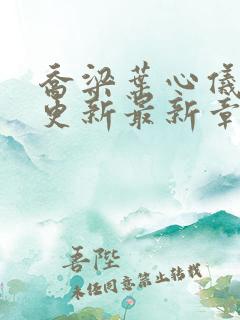 乔梁叶心仪
更新最新章
吾陛
未经同意禁止转载